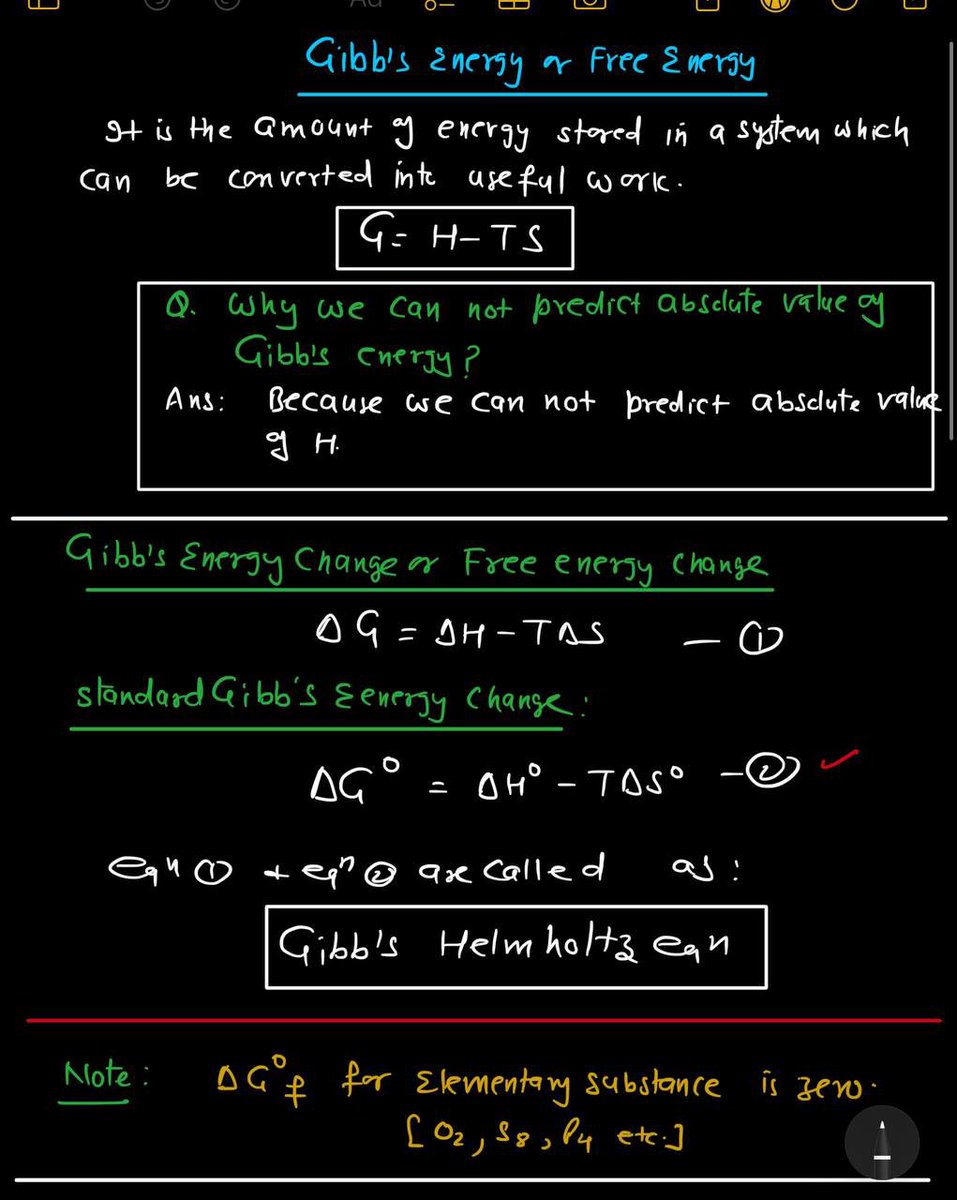 Gibb's Energy or Free Energy
It is the amount of energy stored in a system which
can be converted into useful work.
G = H - TS
Q. Why we can not predict absolute value of
Gibb's energy?
Ans: Because we can not predict absolute value
of H.
Gibb's Energy Change or Free energy change
ΔG = ΔH - TΔS - ①
standard Gibb's Eenergy Change:
ΔG° = ΔH° - TΔS° - ②
eqn ① + eqn ② are called as:
Gibb's Helmholtz eqn
Note: ΔG°f for Elementary substance is zero.
[O2, S8, P4 etc.]